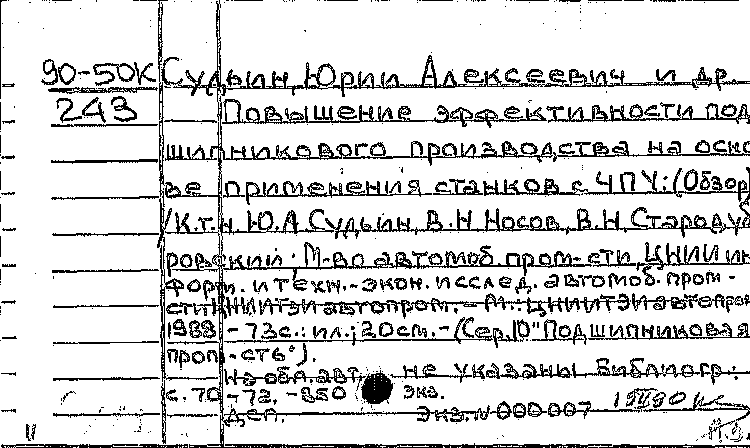 90-50К Судьин, Юрий Алексеевич и др.
243 Повышение эффективности под
шипникового производства на осно
ве применения станков с ЧПУ: (Обзор)
/К.т.н. Ю.А Судьин, В.Н Носов, В.Н. Стародуб
ровский; М-во автомоб. пром-сти, ЦНИИ ин
форм. и техн.-экон. исслед. автомоб. пром-
сти ЦНИИТЭИавтопром. - М.: ЦНИИТЭИавтопром
1988 - 73с.: ил.; 20см. - (Сер.10 "Подшипниковая
пром-сть").
На обл. авт. не указаны Библиогр.:
с. 70-72. - 850 экз.
Деп. Экз. N 000007
11